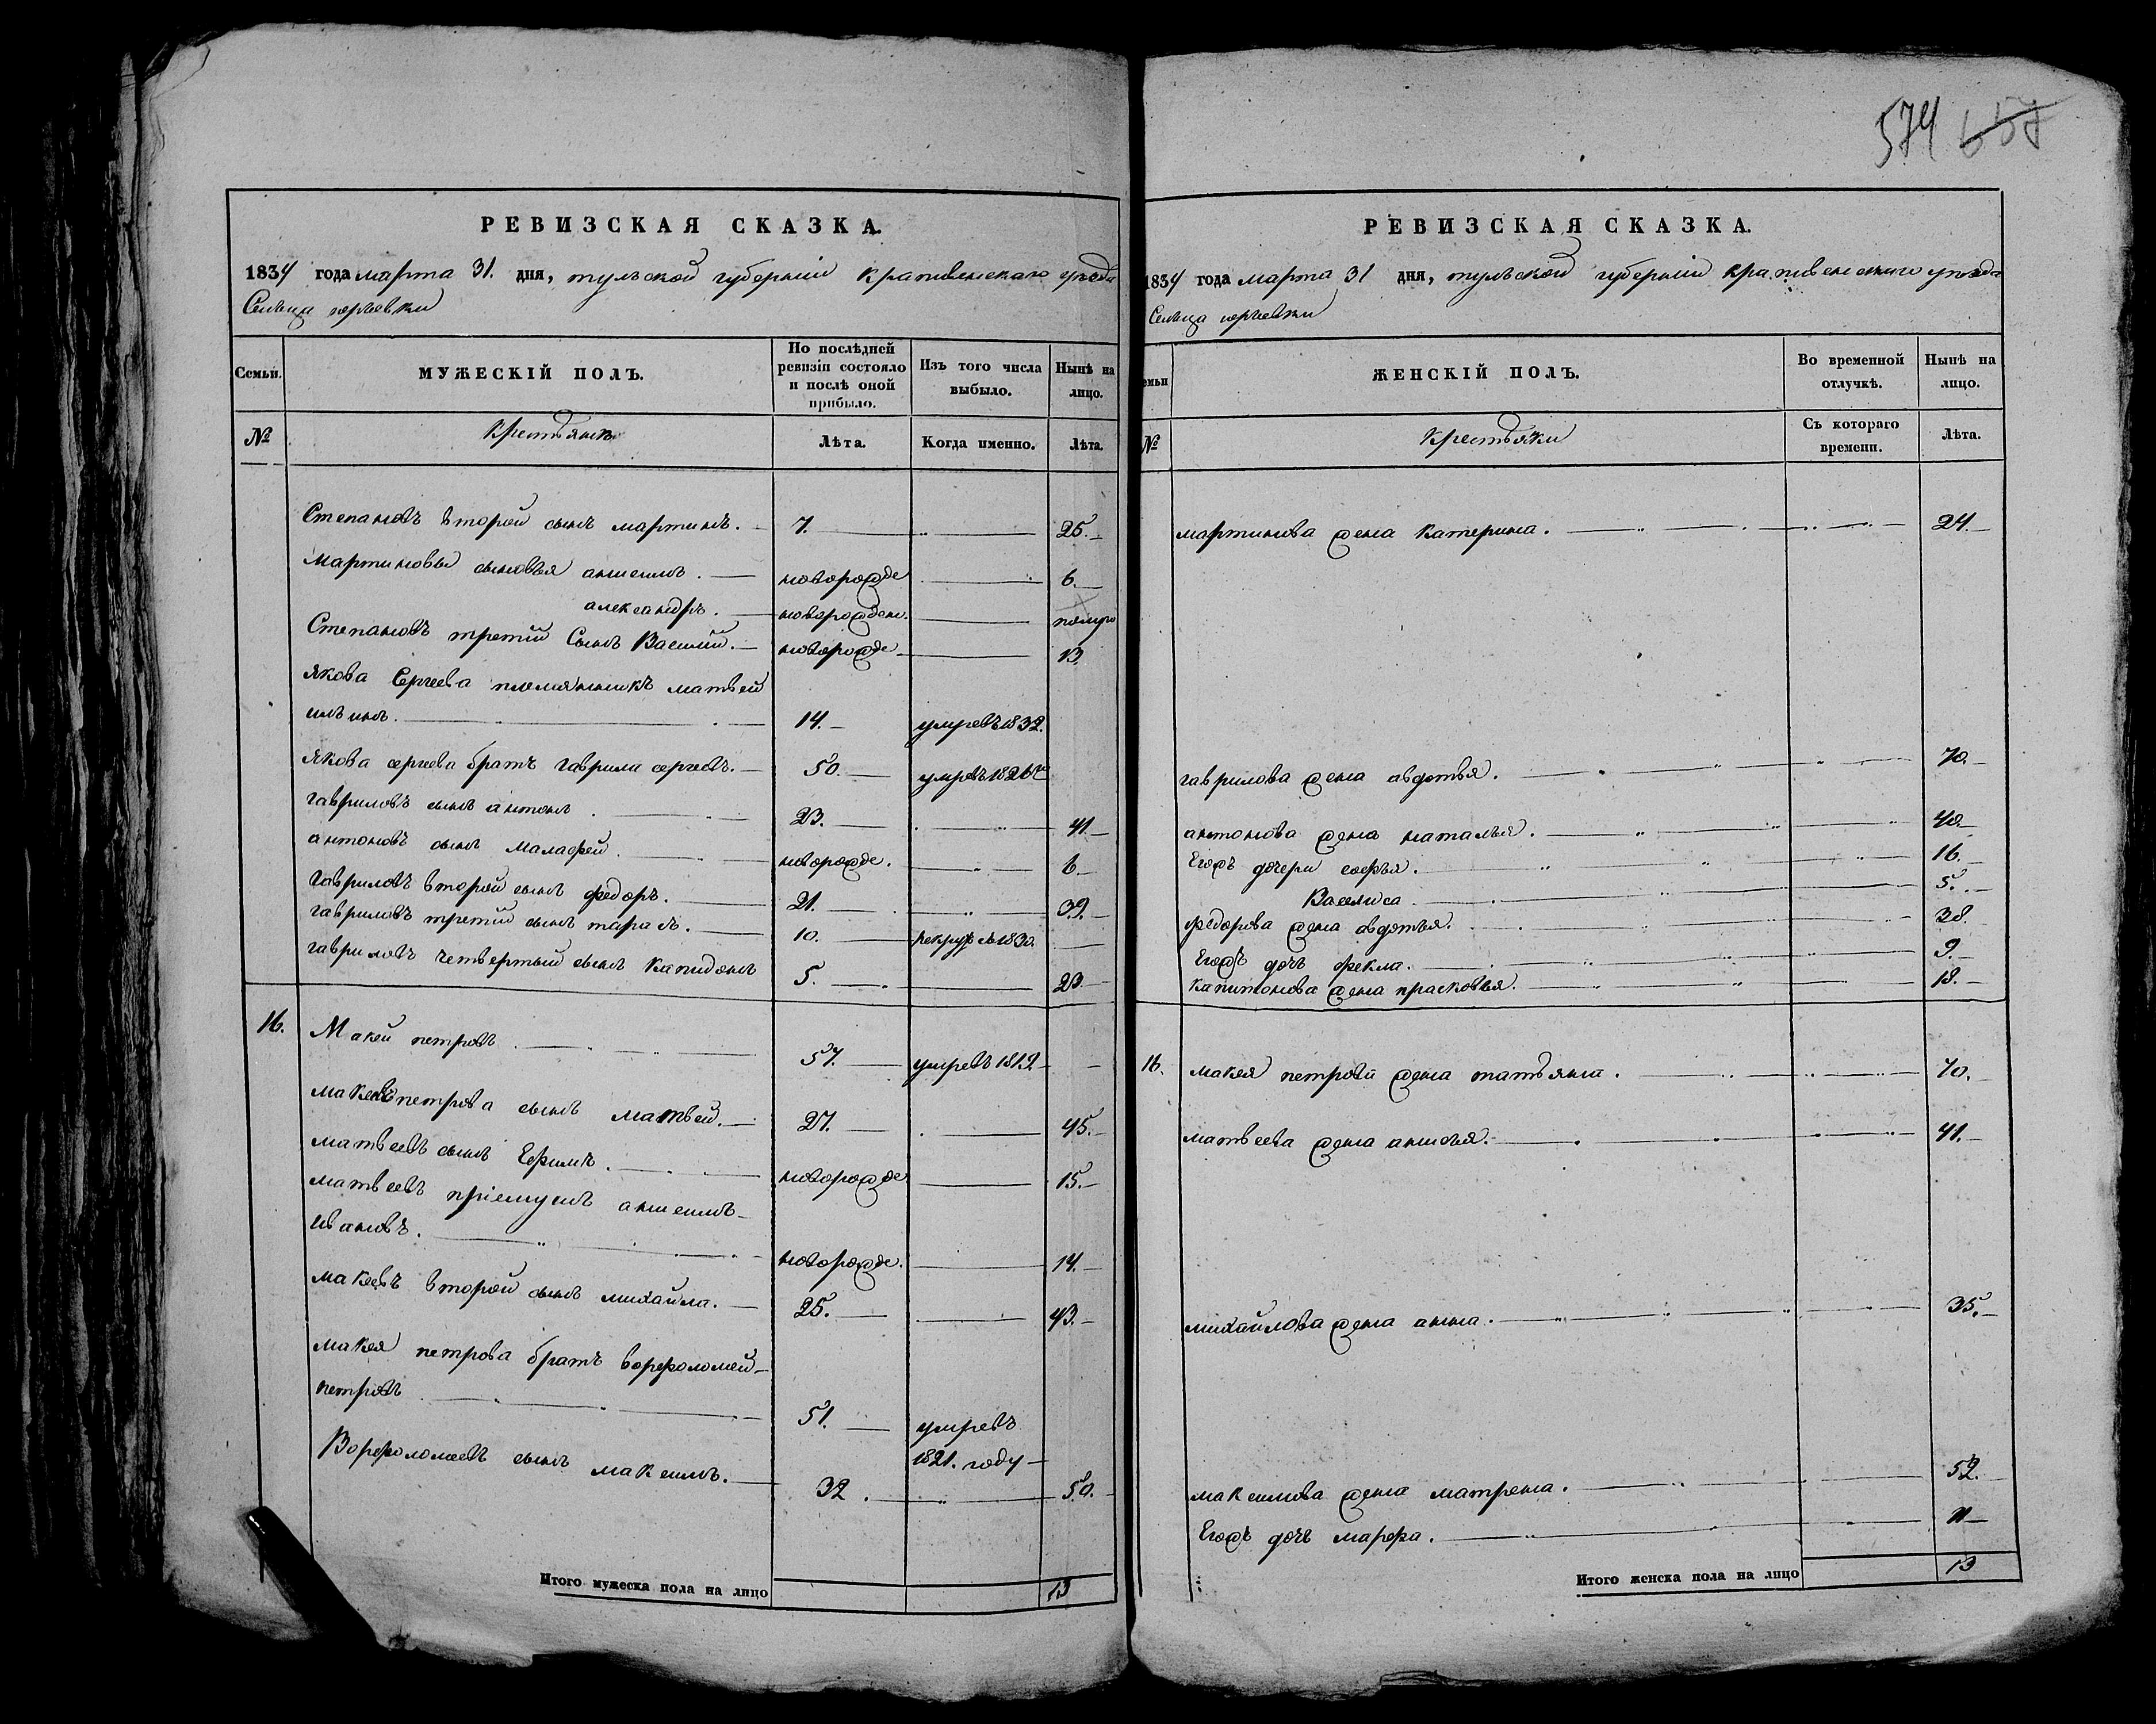 574 657
РЕВИЗСКАЯ СКАЗКА.
1834 года марта 31. дня, тульской губернiи крапивенскаго уѣзда
Сельца
Семьи.
МУЖЕСКІЙ ПОЛЪ.
По послѣдней ревизіи состояло и послѣ оной прибыло.
Изъ того числа выбыло.
Нынѣ на лицо.
№
крестьянъ
Лѣта.
Когда именно.
Лѣта.
Степановъ второй сынъ мартинъ. 7. 25.
мартиновы сыновья анисимъ. новорожде 6.
александръ. новорожден. полугο
Степановъ третiй Сынъ Василiй. новорожде 13.
якова Сергеева племянникъ матвей
ильинъ. 14. умревъ 1832.
якова сергеева братъ гаврила сергеевъ. 50. умревъ 1826го
гавриловъ сынъ антонъ. 23. 41.
антоновъ сынъ Малафей. новорожде. 6
гавриловъ второй сынъ федоръ. 21. 39.
гавриловъ третiй сынъ тарасъ. 10. рекрут въ 1830.
гавриловъ четвертый сынъ капидонъ 5. 23
16. Макей петровъ. 57. умревъ 1819.
макея петрова сынъ матвей. 27. 45.
матвеевъ сынъ Ефимъ. новорожде 15.
матвеевъ прiемушъ анисимъ
ивановъ. новорожде. 14.
макеевъ второй сынъ михайла. 25. 43.
макея петрова братъ ворфоломей
петровъ 51. умревъ
1821. году
Ворфоломеевъ сынъ максимъ. 32. 50.
Итого мужеска пола на лицо 13
РЕВИЗСКАЯ СКАЗКА.
1834 года марта 31 дня, тульской губернiи крапивенскаго уѣзда
Сельца
емьи
ЖЕНСКІЙ ПОЛЪ.
Во временной отлучкѣ.
Нынѣ на лицо.
№
крестьяки
Съ котораго времени.
Лѣта.
мартинова жена катерина. 24.
гаврилова жена авдотья. 70.
антонова жена наталья. 40.
Егожъ дочери софья. 16.
Васелиса 5.
федорова жена авдотья. 38.
Егожъ дочь фекла. 9.
капитонова жена прасковья. 18.
16. макея петрова жена татьяна. 70.
матвеева жена анисья. 41.
михайлова жена анна. 35.
максимова жена матрена. 52.
Егожъ дочь марфа. 11
Итого женска пола на лицо 13